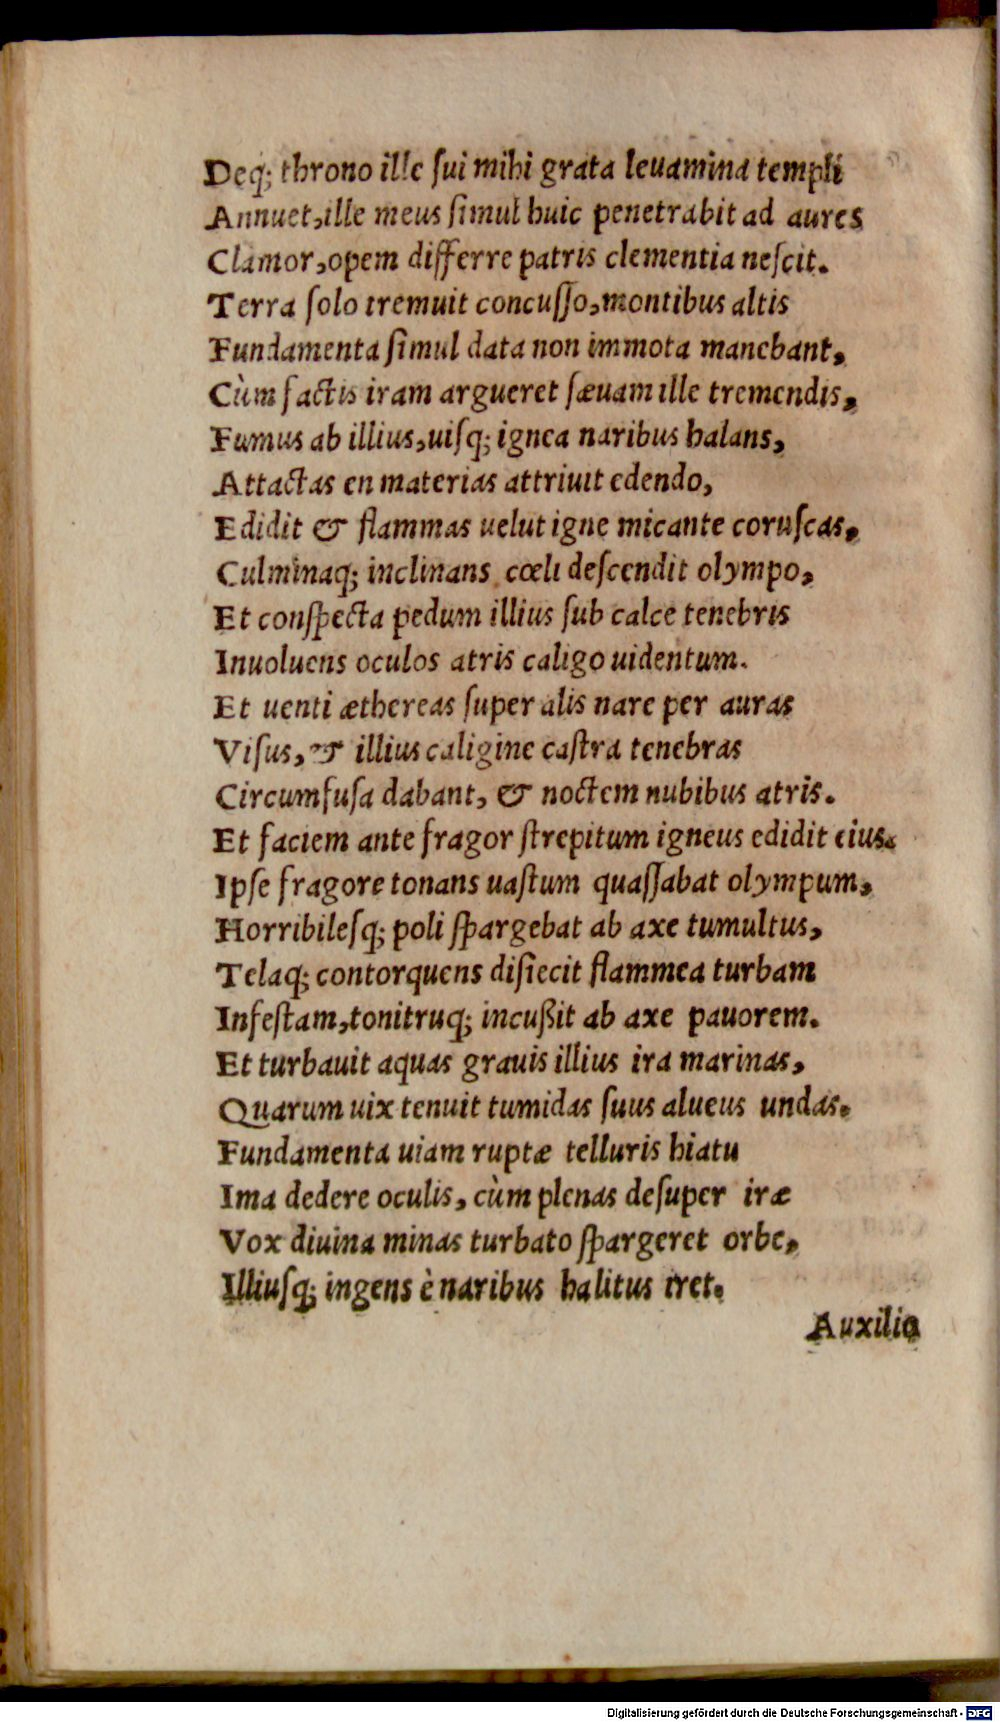 Deq; throno ille ſui mihi grata leuamina templi
Annuet, ille meus ſimul huic penetrabit ad aures
Clamor, opem differre patris clementia neſcit.
Terra ſolo tremuit concuſſo, montibus altis
Fundamenta ſimul data non immota manebant,
Cùm factis iram argueret ſæuam ille tremendis,
Fumus ab illius, uiſq; ignea naribus halans,
Attactas en materias attriuit edendo,
Edidit & flammas uelut igne micante coruſcas,
Culminaq; inclinans cœli deſcendit olympo,
Et conſpecta pedum illius ſub calce tenebris
Inuoluens oculos atris caligo uidentum.
Et uenti æthereas ſuper alis nare per auras
Viſus, & illius caligine caſtra tenebras
Circumfuſa dabant, & noctem nubibus atris.
Et faciem ante fragor ſtrepitum igneus edidit eius.
Ipſe fragore tonans uaſtum quaſſabat olympum,
Horribileſq; poli ſpargebat ab axe tumultus,
Telaq; contorquens diſiecit flammea turbam
Infeſtam, tonitruq; incußit ab axe pauorem.
Et turbauit aquas grauis illius ira marinas,
Quarum uix tenuit tumidas ſuus alueus undas.
Fundamenta uiam ruptæ telluris hiatu
Ima dedere oculis, cùm plenas deſuper iræ
Vox diuina minas turbato ſpargeret orbe,
Illiuſq; ingens è naribus halitus iret.
Auxilio
Digitalisierung gefördert durch die Deutsche Forschungsgemeinschaft - DFG